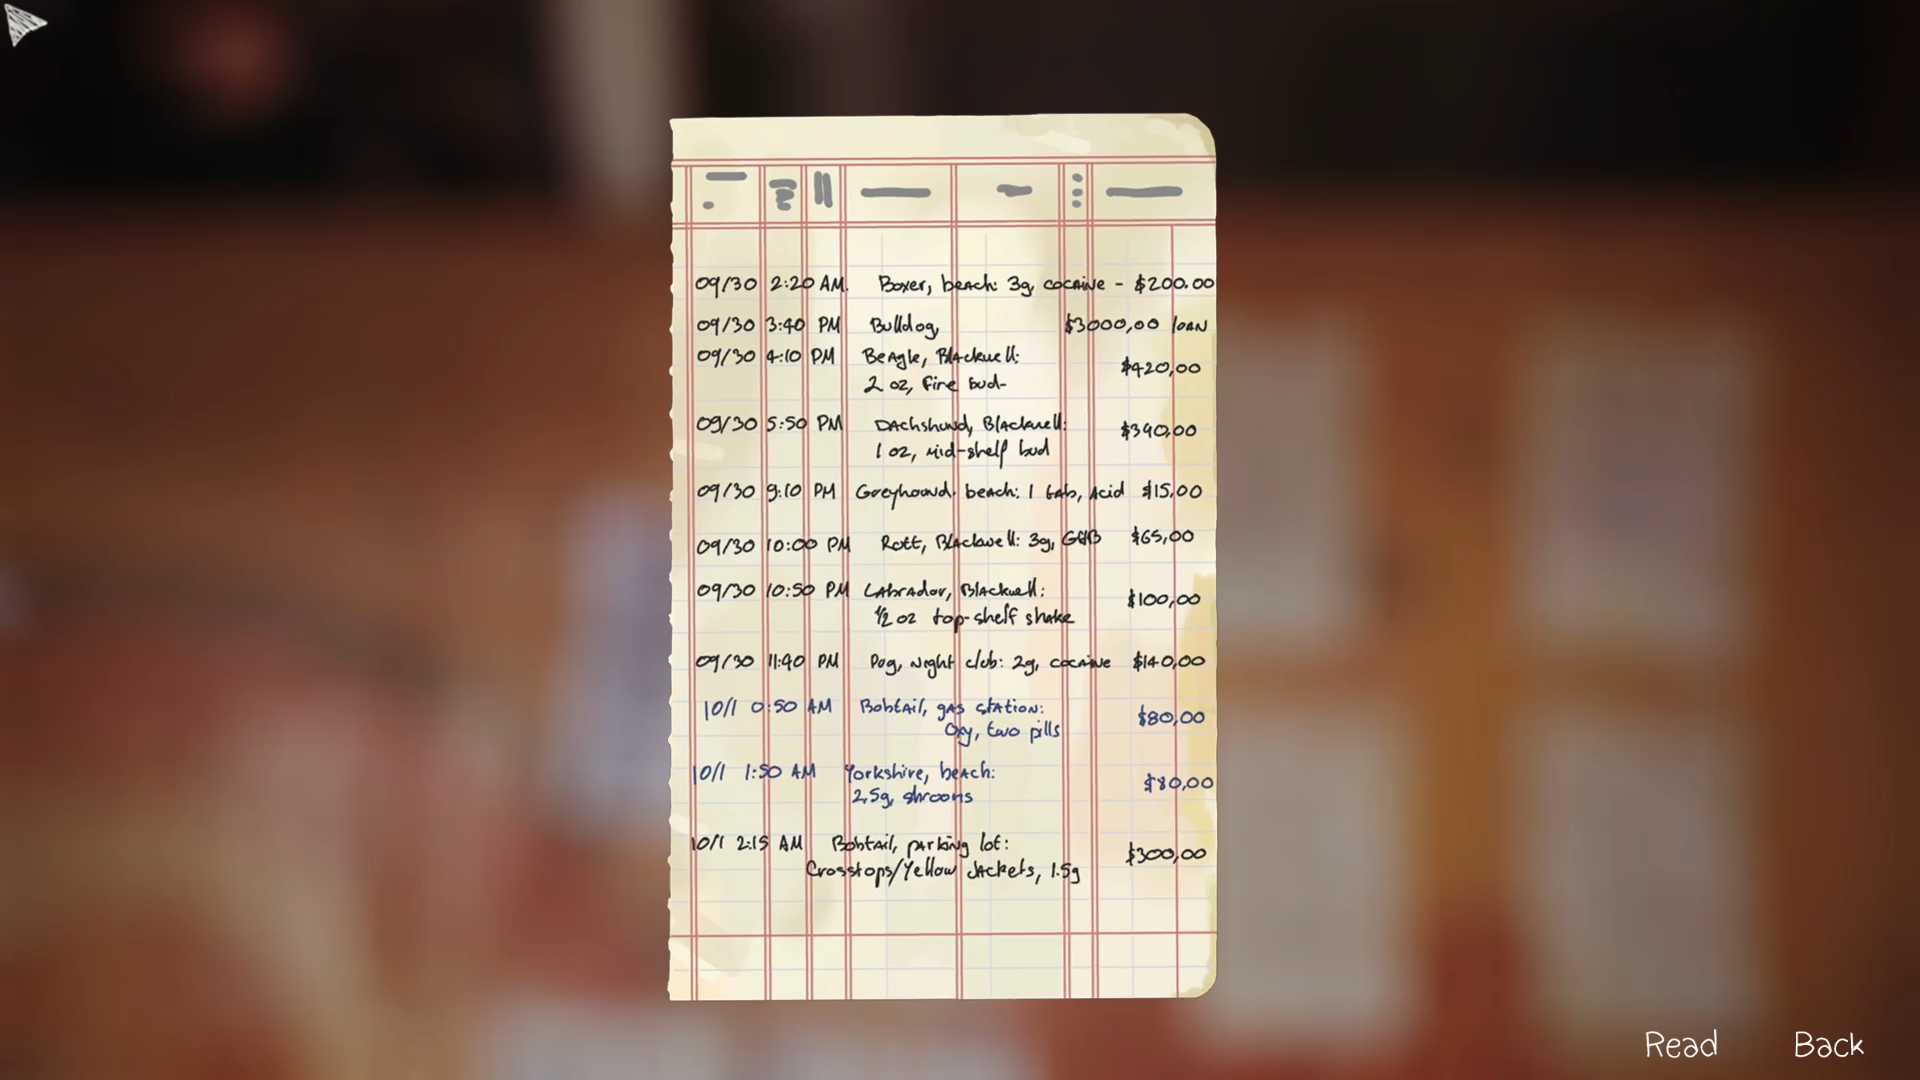 09/30 2:20 AM. Boxer, beach: 3g, cocaine - $200.00
09/30 3:40 PM Bulldog, $3000,00 loan
09/30 4:10 PM Beagle, Blackwell:
2 oz, fine bud- $420,00
09/30 5:50 PM Dachshund, Blackwell: $390,00
1 oz, mid-shelf bud
09/30 9:10 PM Greyhound, beach: 1 tab, Acid $15,00
09/30 10:00 PM Rott, Blackwell: 3g, GHB $65,00
09/30 10:50 PM Labrador, Blackwell: $100,00
1/2 oz top-shelf shake
09/30 11:40 PM Pog, night club: 2g, cocaine $140,00
10/1 0:50 AM Bobtail, gas station: $80,00
Oxy, two pills
10/1 1:50 AM Yorkshire, beach: $80,00
2,5g, shrooms
10/1 2:15 AM Bobtail, parking lot: $300,00
Crosstops/Yellow Jackets, 1.5g
Read Back